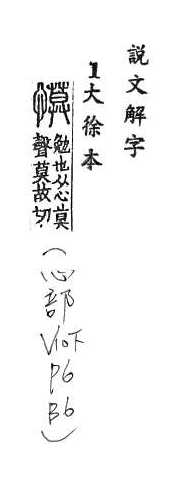 説文解字
1大徐本
慔 勉也从心莫
聲莫故切
(心部
V10下
P6
B6)